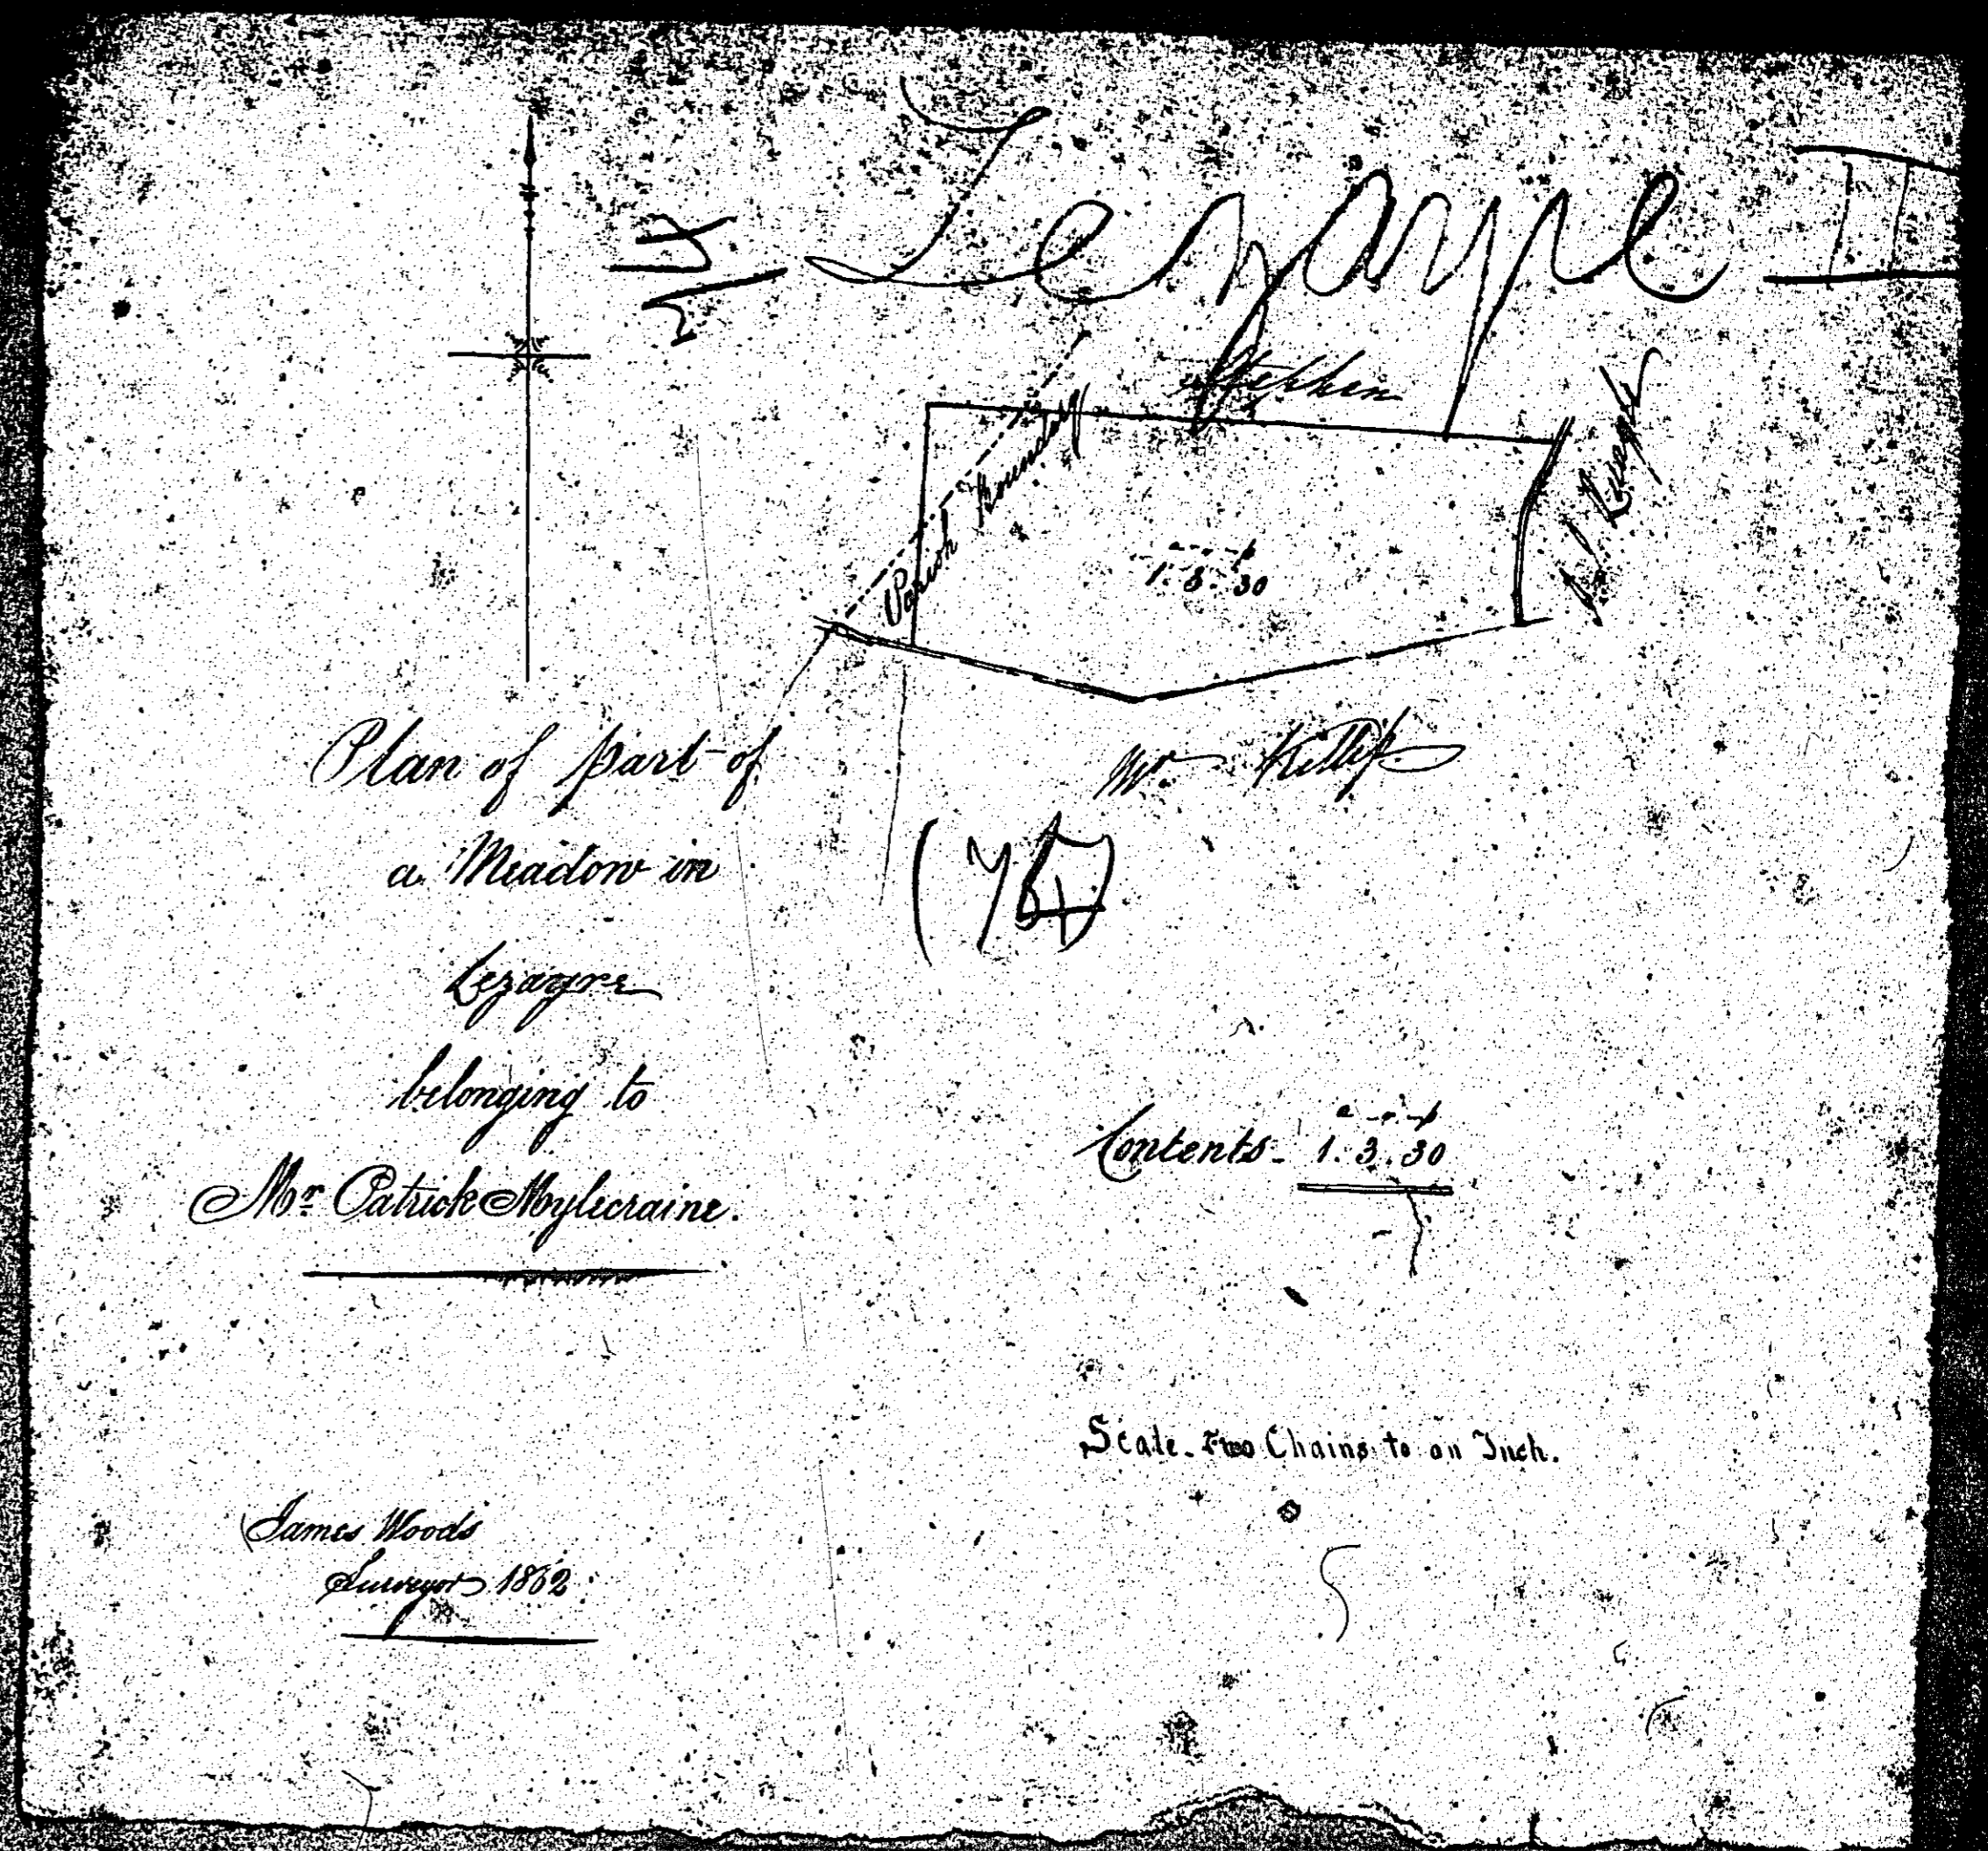 Lezayre II
Stephen
Parish Boundary
a r p
1. 3. 30
Mr Killip
Plan of part of
a Meadow in
Lezayre
belonging to
Mr Patrick Mylecraine.
Contents - 1. 3. 30
a r p
Scale - Two Chains to an Inch.
James Woods
Surveyor 1862